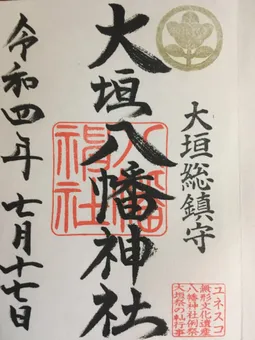 大垣総鎮守
大垣八幡神社
令和四年 七月十七日
ユネスコ
無形文化遺産
八幡神社例祭
大垣祭の軕行事